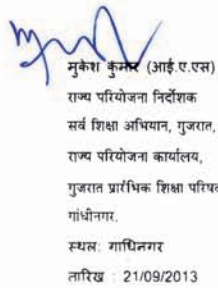 मुकेश कुमार (आई.ए.एस)
राज्य परियोजना निर्देशक
सर्व शिक्षा अभियान, गुजरात,
राज्य परियोजना कार्यालय,
गुजरात प्रारंभिक शिक्षा
गांधीनगर.
स्थल: गाधिनगर
तारिख : 21/09/2013